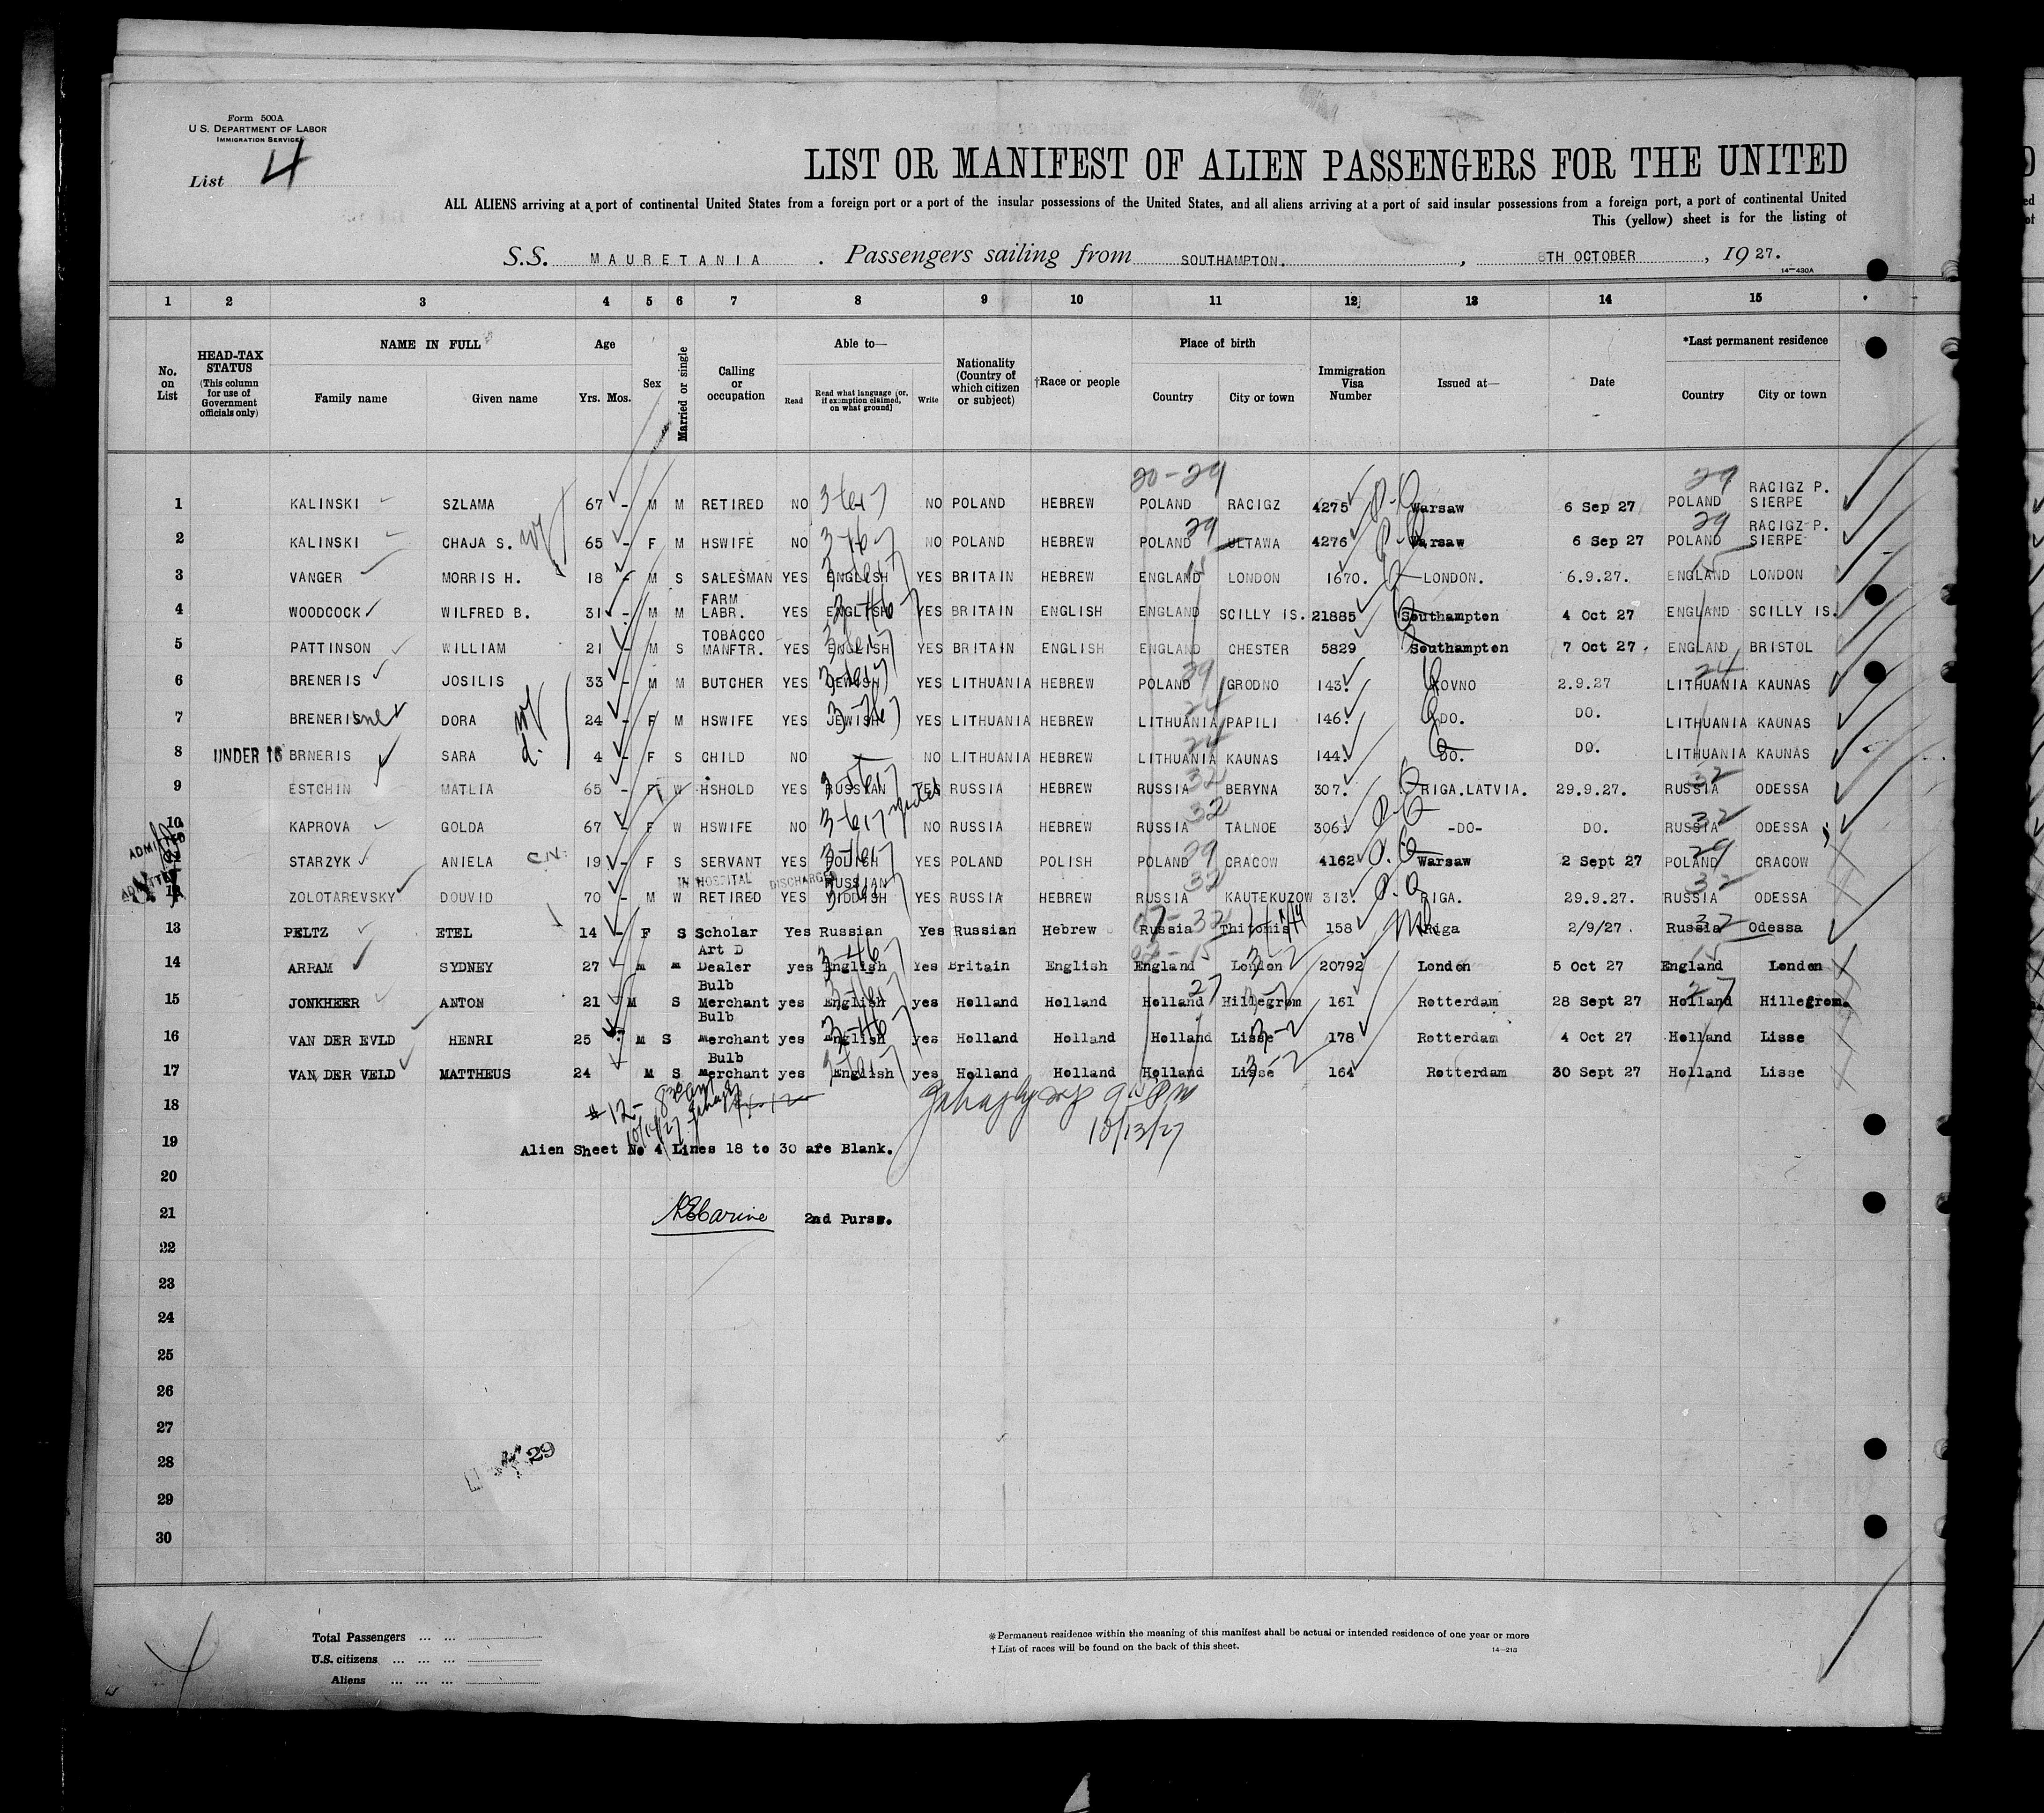 Form 500A
U.S. DEPARTMENT OF LABOR
IMMIGRATION SERVICE
List 4
LIST OR MANIFEST OF ALIEN PASSENGERS FOR THE UNITED
ALL ALIENS arriving at a port of continental United States from a foreign port or a port of the insular possessions of the United States, and all aliens arriving at a port of said insular possessions from a foreign port, a port of continental United
This (yellow) sheet is for the listing of
S.S. MAURETANIA . Passengers sailing from SOUTHAMPTON. , 8TH OCTOBER , 19 27.
14-430A
1 2 3 4 5 6 7 8 9 10 11 12 13 14 15
No. on List HEAD-TAX STATUS (This column for use of Government officials only) NAME IN FULL Family name Given name Age Yrs. Mos. Sex Married or single Calling or occupation Able to— Read Read what language (or, if exemption claimed, on what ground) Write Nationality (Country of which citizen or subject) †Race or people Place of birth Country City or town Immigration Visa Number Issued at— Date *Last permanent residence Country City or town
20-29 29
1 KALINSKI SZLAMA 67 - M M RETIRED NO NO POLAND HEBREW POLAND RACIGZ 4275 Warsaw 6 Sep 27 POLAND RACIGZ P. SIERPE
2 KALINSKI CHAJA S. wf 65 - F M HSWIFE NO NO POLAND HEBREW POLAND 29 ULTAWA 4276 Warsaw 6 Sep 27 POLAND 29 RACIGZ P. SIERPE
3 VANGER MORRIS H. 18 - M S SALESMAN YES ENGLISH YES BRITAIN HEBREW ENGLAND 15 LONDON 1670. LONDON. 6.9.27. ENGLAND 15 LONDON
4 WOODCOCK WILFRED B. 31 - M M FARM LABR. YES ENGLISH YES BRITAIN ENGLISH ENGLAND SCILLY IS. 21885 Southampton 4 Oct 27 ENGLAND SCILLY IS.
5 PATTINSON WILLIAM 21 - M S TOBACCO MANFTR. YES ENGLISH YES BRITAIN ENGLISH ENGLAND CHESTER 5829 Southampton 7 Oct 27. ENGLAND BRISTOL
6 BRENERIS JOSILIS 33 - M M BUTCHER YES JEWISH YES LITHUANIA HEBREW POLAND 29 GRODNO 143. KOVNO 2.9.27 LITHUANIA 24 KAUNAS
7 BRENERIS DORA wf 24 - F M HSWIFE YES JEWISH YES LITHUANIA HEBREW LITHUANIA 24 PAPILI 146. DO. DO. LITHUANIA KAUNAS
8 UNDER 16 BRNERIS SARA d. 4 - F S CHILD NO — NO LITHUANIA HEBREW LITHUANIA 24 KAUNAS 144. DO. DO. LITHUANIA KAUNAS
9 ESTCHIN MATLIA 65 - F W HSHOLD YES RUSSIAN YES RUSSIA HEBREW RUSSIA 32 BERYNA 307. RIGA.LATVIA. 29.9.27. RUSSIA 32 ODESSA
10 KAPROVA GOLDA 67 - F W HSWIFE NO NO RUSSIA HEBREW RUSSIA 32 TALNOE 306. -DO- DO. RUSSIA 32 ODESSA
ADMITTED STARZYK ANIELA 19 - F S SERVANT YES POLISH YES POLAND POLISH POLAND 29 CRACOW 4162 Warsaw 2 Sept 27 POLAND 29 CRACOW
IN HOSPITAL DISCHARGED
ADMITTED 12 ZOLOTAREVSKY DOUVID 70 - M W RETIRED YES RUSSIAN YIDDISH YES RUSSIA HEBREW RUSSIA 32 KAUTEKUZOW 313. RIGA. 29.9.27. RUSSIA 32 ODESSA
13 PELTZ ETEL 14 - F S Scholar Yes Russian Yes Russian Hebrew Russia 32 Thitomis 158 Riga 2/9/27. Russia 32 Odessa
14 ARRAM SYDNEY 27 - M M Art D Dealer yes English Yes Britain English England 15 London 20792 London 5 Oct 27 England 15 London
15 JONKHEER ANTON 21 - M S Bulb Merchant yes English yes Holland Holland Holland 27 Hillegrom 161 Rotterdam 28 Sept 27 Holland 27 Hillegrom.
16 VAN DER EVLD HENRI 25 M S Bulb Merchant yes English yes Holland Holland Holland Lisse 178 Rotterdam 4 Oct 27 Holland Lisse
17 VAN DER VELD MATTHEUS 24 M S Bulb Merchant yes English yes Holland Holland Holland Lisse 164 Rotterdam 30 Sept 27 Holland Lisse
18 #12-
10/13/27
19 Alien Sheet No 4 Lines 18 to 30 are Blank.
20
21 2nd Purse.
22
23
24
25
26
27
28 29
29
30
Total Passengers ... ...
U.S. citizens ... ... ...
Aliens ... ... ...
* Permanent residence within the meaning of this manifest shall be actual or intended residence of one year or more
† List of races will be found on the back of this sheet.
14-213